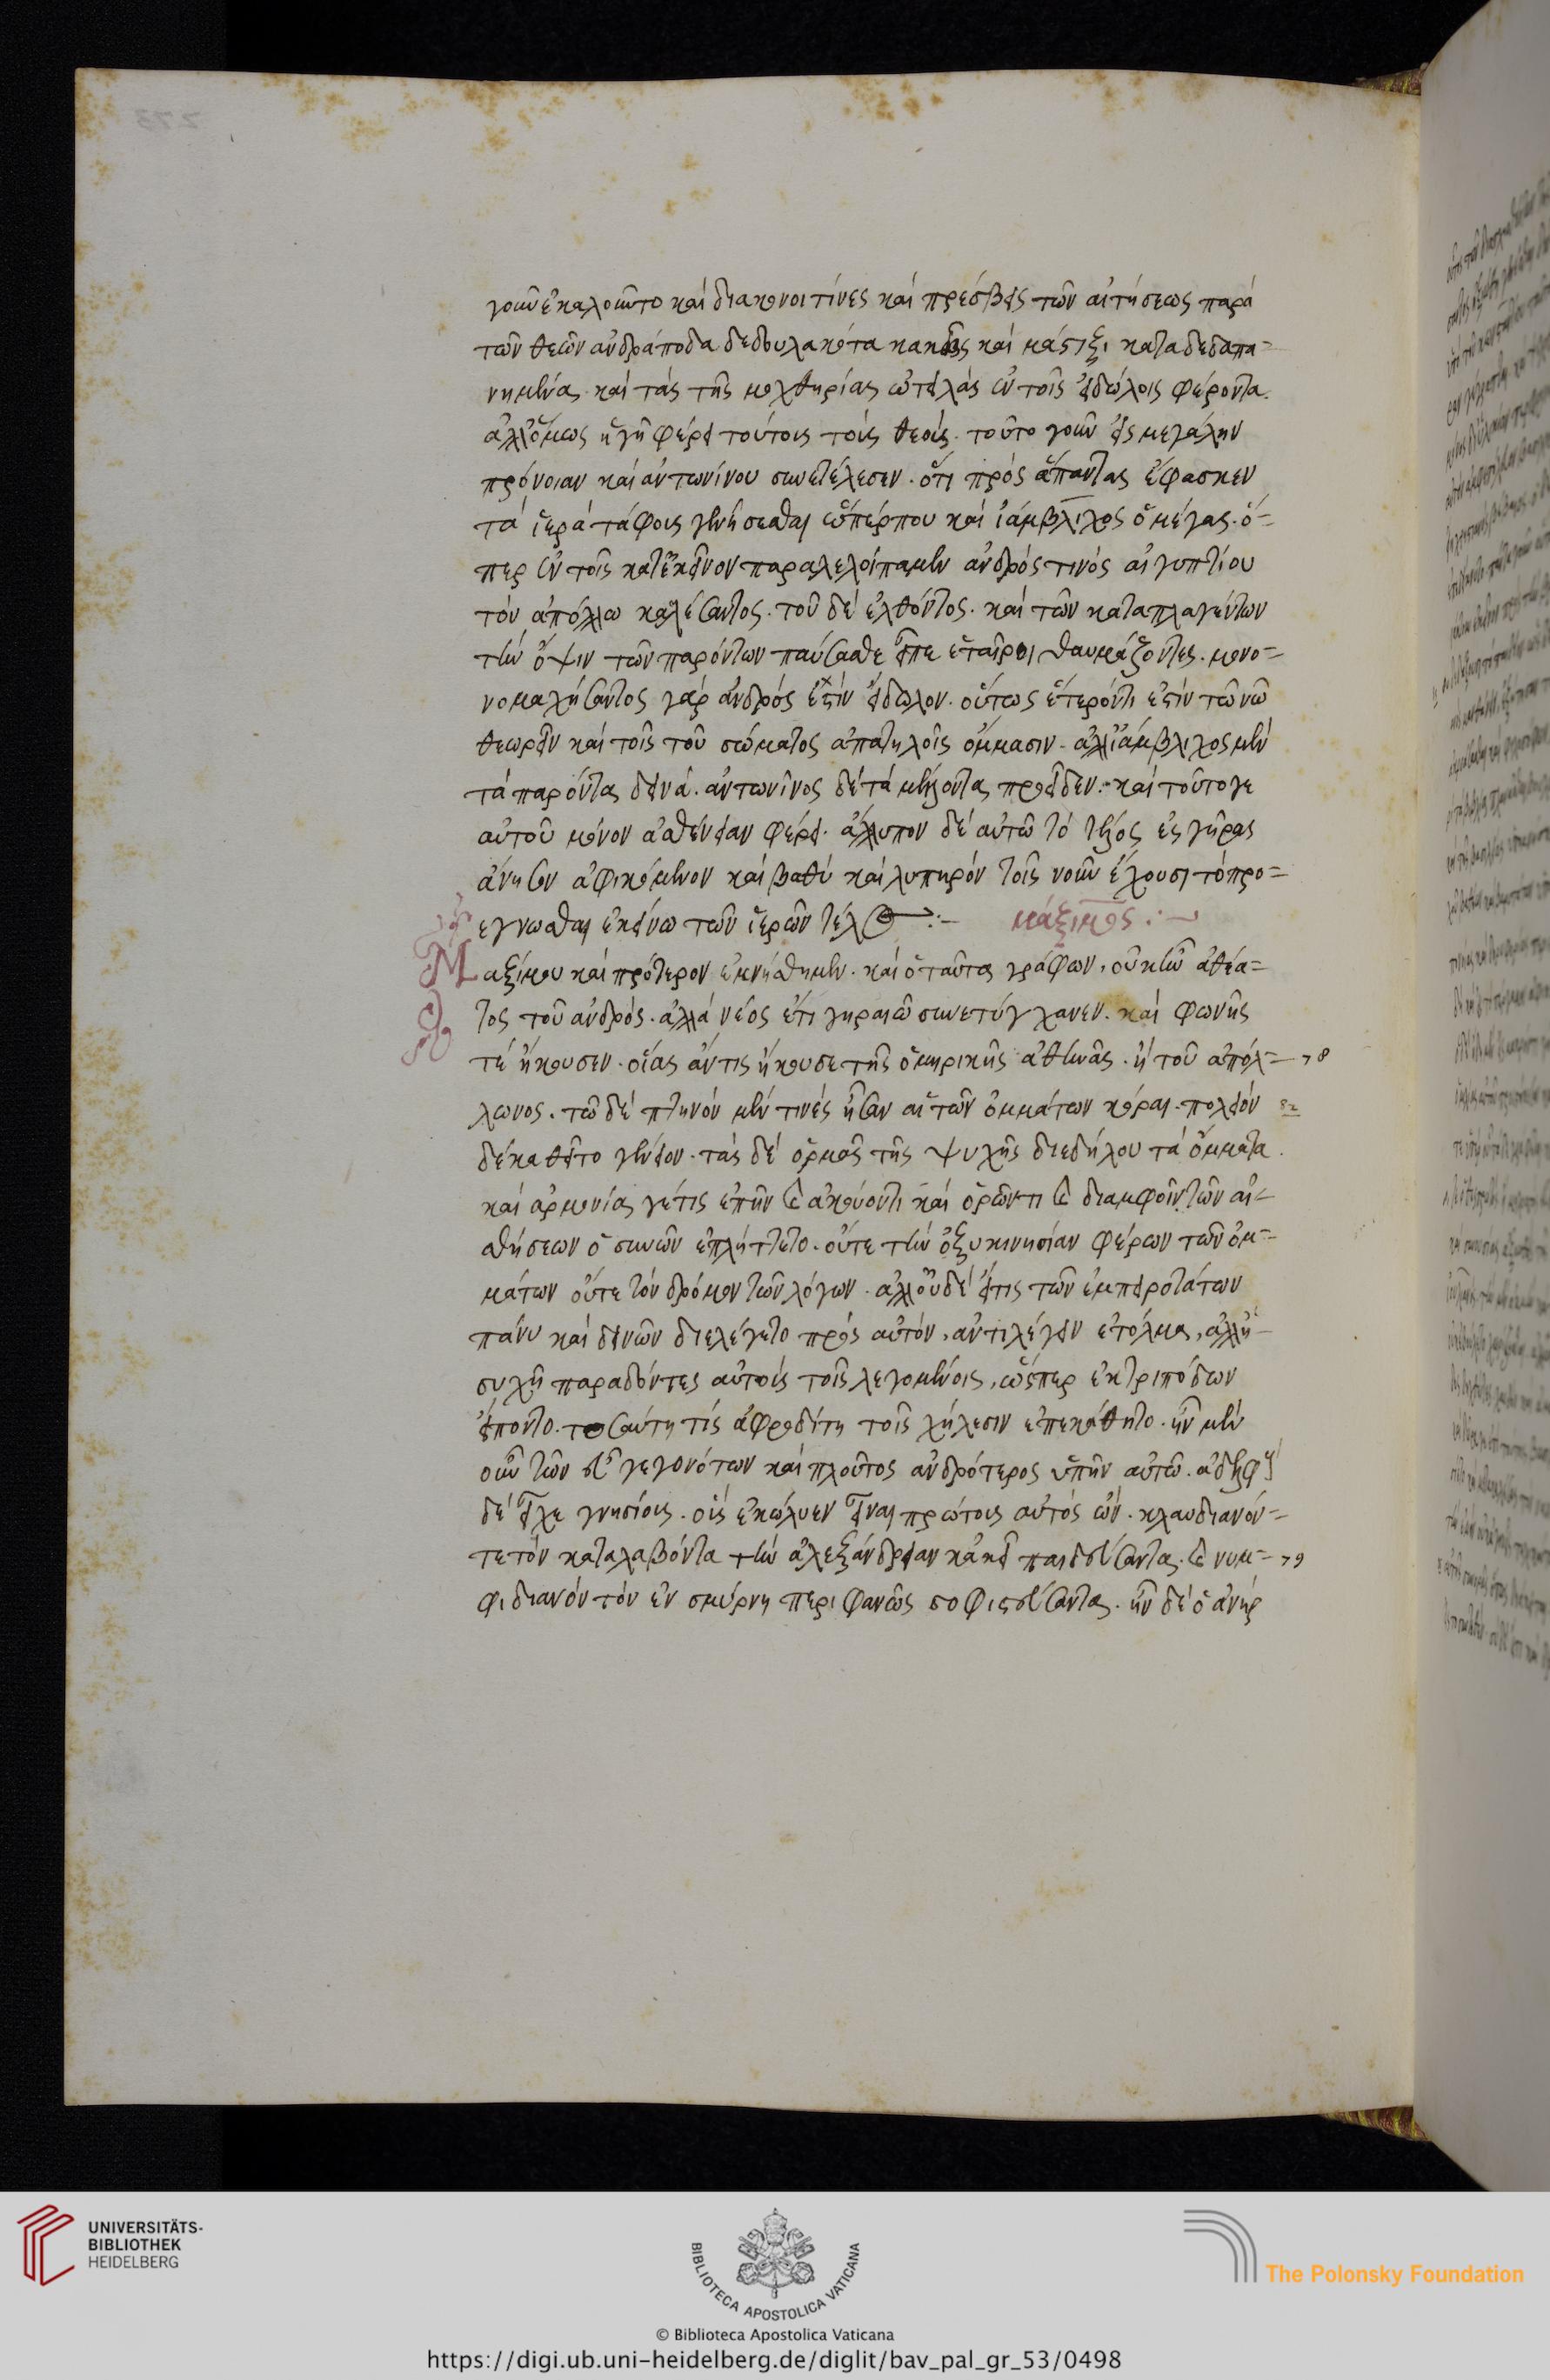 γοῦν ἐκαλοῦντο καὶ διάκονοι τινὲς καὶ πρέσβεις τῶν αἰτήσεως παρὰ
τῶν θεῶν ἀνδράποδα δεδουλακότα κακῶς καὶ μάστιξι καταδεδαπα=
νημένας καὶ τὰς τῆς μοχθηρίας ὠτειλὰς ἐν τοῖς εἰδώλοις φέροντα.
ἀλλ' ὅμως ἡ γῆ φέρει τούτοις τοῖς θεοῖς. τοῦτο γοῦν εἰς μεγάλην
πρόνοιαν καὶ ἀντωνίνου συνετέλεσεν. ὅτι πρὸς ἅπαντας ἔφασκεν
τὰ ἱερὰ τάφοις γενήσεσθαι ὥσπερ που καὶ ἰάμβλιχος ὁ μέγας. ὅ=
περ ἐν τοῖς κατ' ἐκεῖνον παραλελοίπαμεν ἀνδρός τινὸς αἰγυπτίου
τὸν ἀπόλλω καλέσαντος. τοῦ δὲ ἐλθόντος. καὶ τῶν καταπλαγέντων
τὴν ὄψιν τῶν παρόντων παύσασθε εἶπε ἑταῖροι θαυμάζοντες. μονο=
νομαχήσαντος γὰρ ἀνδρὸς ἐστὶν εἴδωλον. οὕτως ἕτερόν τι ἐστὶν τῶ νῶ
θεωρεῖν καὶ τοῖς τοῦ σώματος ἀπατηλοῖς ὄμμασιν. ἀλλ' ἰάμβλιχος μὲν
τὰ παρόντα δεινὰ. ἀντωνῖνος δὲ τὰ μέλλοντα προεῖδεν. καὶ τοῦτό γε
αὐτοῦ μόνον ἀσθένειαν φέρει. ἄλυπον δὲ αὐτῶ τὸ τέλος εἰς γῆρας
ἄνησον ἀφικόμενον καὶ βαθὺ καὶ λυπηρὸν τοῖς νοῦν ἔχουσι τὸ προ=
εγνωσθαι ἐκείνω τῶν ἱερῶν τέλος :– μάξιμος :–
Μαξίμου καὶ πρότερον ἐμνήσθημεν. καὶ ὁ ταῦτα γράφων, οὐκ ἦν ἀθέα=
τος τοῦ ἀνδρός. ἀλλὰ νέος ἔτι γηραιῶ συνετύγχανεν. καὶ φωνῆς
τὲ ἤκουσεν. οἵας ἄν τις ἤκουσε τῆς ὁμηρικῆς ἀθηνᾶς. ἢ τοῦ ἀπόλ= 78
λωνος. τῶ δὲ πτηνὸν μέν τινὲς ἦσαν αἱ τῶν ὀμμάτων κόραι. πολειὸν 82
δὲ καθεῖτο γένειον. τὰς δὲ ὁρμὰς τῆς ψυχῆς διεδήλου τὰ ὄμματα.
καὶ ἁρμονία γέ τις ἐπῆν καὶ ἀκούοντι καὶ ὁρῶντι καὶ δι' ἀμφοῖν τῶν αἰ=
σθήσεων ὁ συνὼν ἐπλήττετο. οὔτε τὴν ὀξυκινησίαν φέρων τῶν ὀμ=
μάτων οὔτε τὸν δρόμον τῶν λόγων. ἀλλ' οὐδὲ εἴ τις τῶν ἐμπειροτάτων
πάνυ καὶ δεινῶν διελέγετο πρὸς αὐτὸν, ἀντιλέγειν ἐτόλμα, ἀλλ' ἡ=
συχῆ παραδόντες αὐτοὺς τοῖς λεγομένοις, ὥσπερ ἐκ τριπόδων
εἵποντο. τοσαύτη τίς ἀφροδίτη τοῖς χήλεσιν ἐπεκάθητο. ἦν μὲν
οὖν τῶν εὖ γεγονότων καὶ πλοῦτος ἀνδρότερος ὑπῆν αὐτῶ. ἀδελφοὺς
δὲ εἶχε γνησίοις. οἷς ἐκώλυεν εἶναι πρώτοις αὐτὸς ὢν. κλαυδιανόν=
τε τὸν καταλαβόντα τὴν ἀλεξάνδρειαν κἀκεῖ παιδεύσαντα. καὶ νυμ= 79
φιδιανὸν τὸν ἐν σμύρνη περιφανῶς σοφιστεύσαντα. ἦν δὲ ὁ ἀνὴρ
UNIVERSITÄTS-
BIBLIOTHEK
HEIDELBERG
BIBLIOTECA APOSTOLICA VATICANA
The Polonsky Foundation
© Biblioteca Apostolica Vaticana
https://digi.ub.uni-heidelberg.de/diglit/bav_pal_gr_53/0498